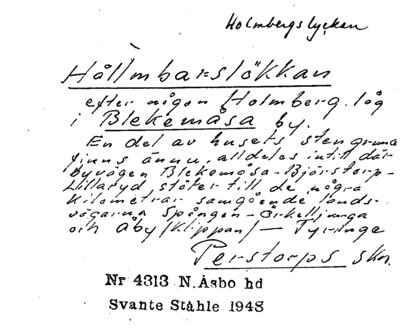 Holmbergslyckan
Hållmbarslökkan
efter någon Holmberg. låg
i Blekemåsa by.
En del av husets stengrund
finns ännu. alldeles intill där
byvägen Blekemåsa-Björstorp-
Lillaryd stöter till de några
kilometrar samgående lands-
vägarna Spången-Örkelljunga
och Åby (Klippan) - Tyringe
Perstorps skn.
Nr 4313 N.Åsbo hd
Svante Ståhle 1948